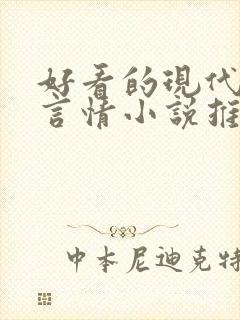 好看的现代
言情小说推
中本尼迪克特